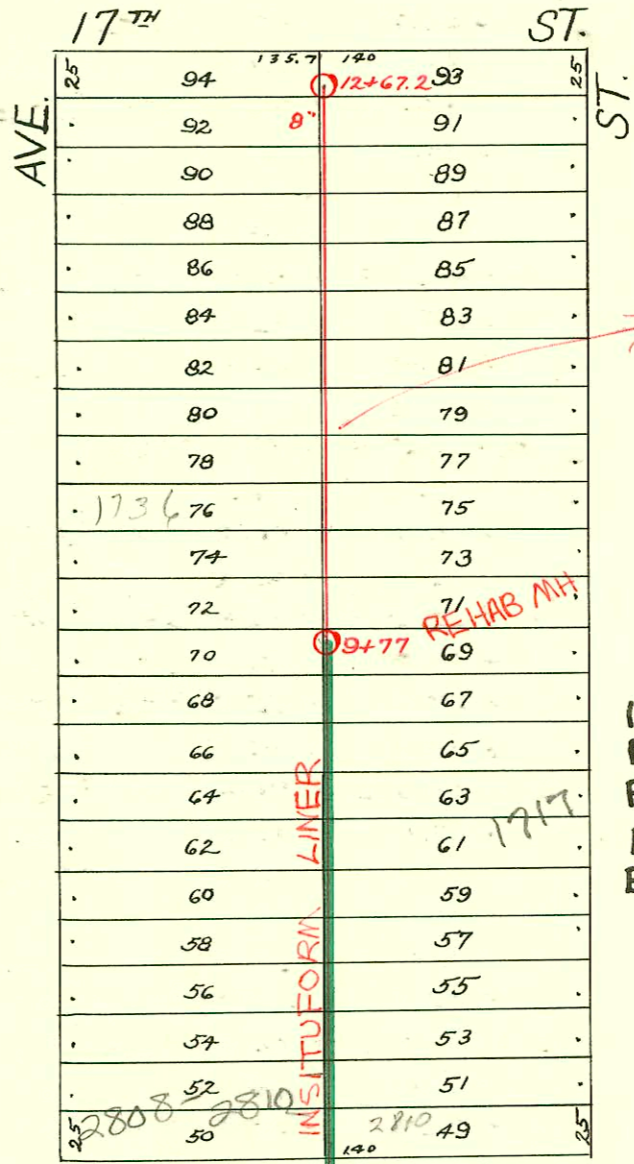 17TH ST.
AVE. ST.
25 135.7 140 25
94 12+67.2 93
92 8" 91
90 89
88 87
86 85
84 83
82 81
80 79
78 77
1736 76 75
74 73
72 71
REHAB MH
70 9+77 69
68 67
66 65
64 63
62 61 1717
60 59
58 57
56 55
54 53
52 51
2808-2810 2810
25 50 49 25
140
INSITUFORM LINER